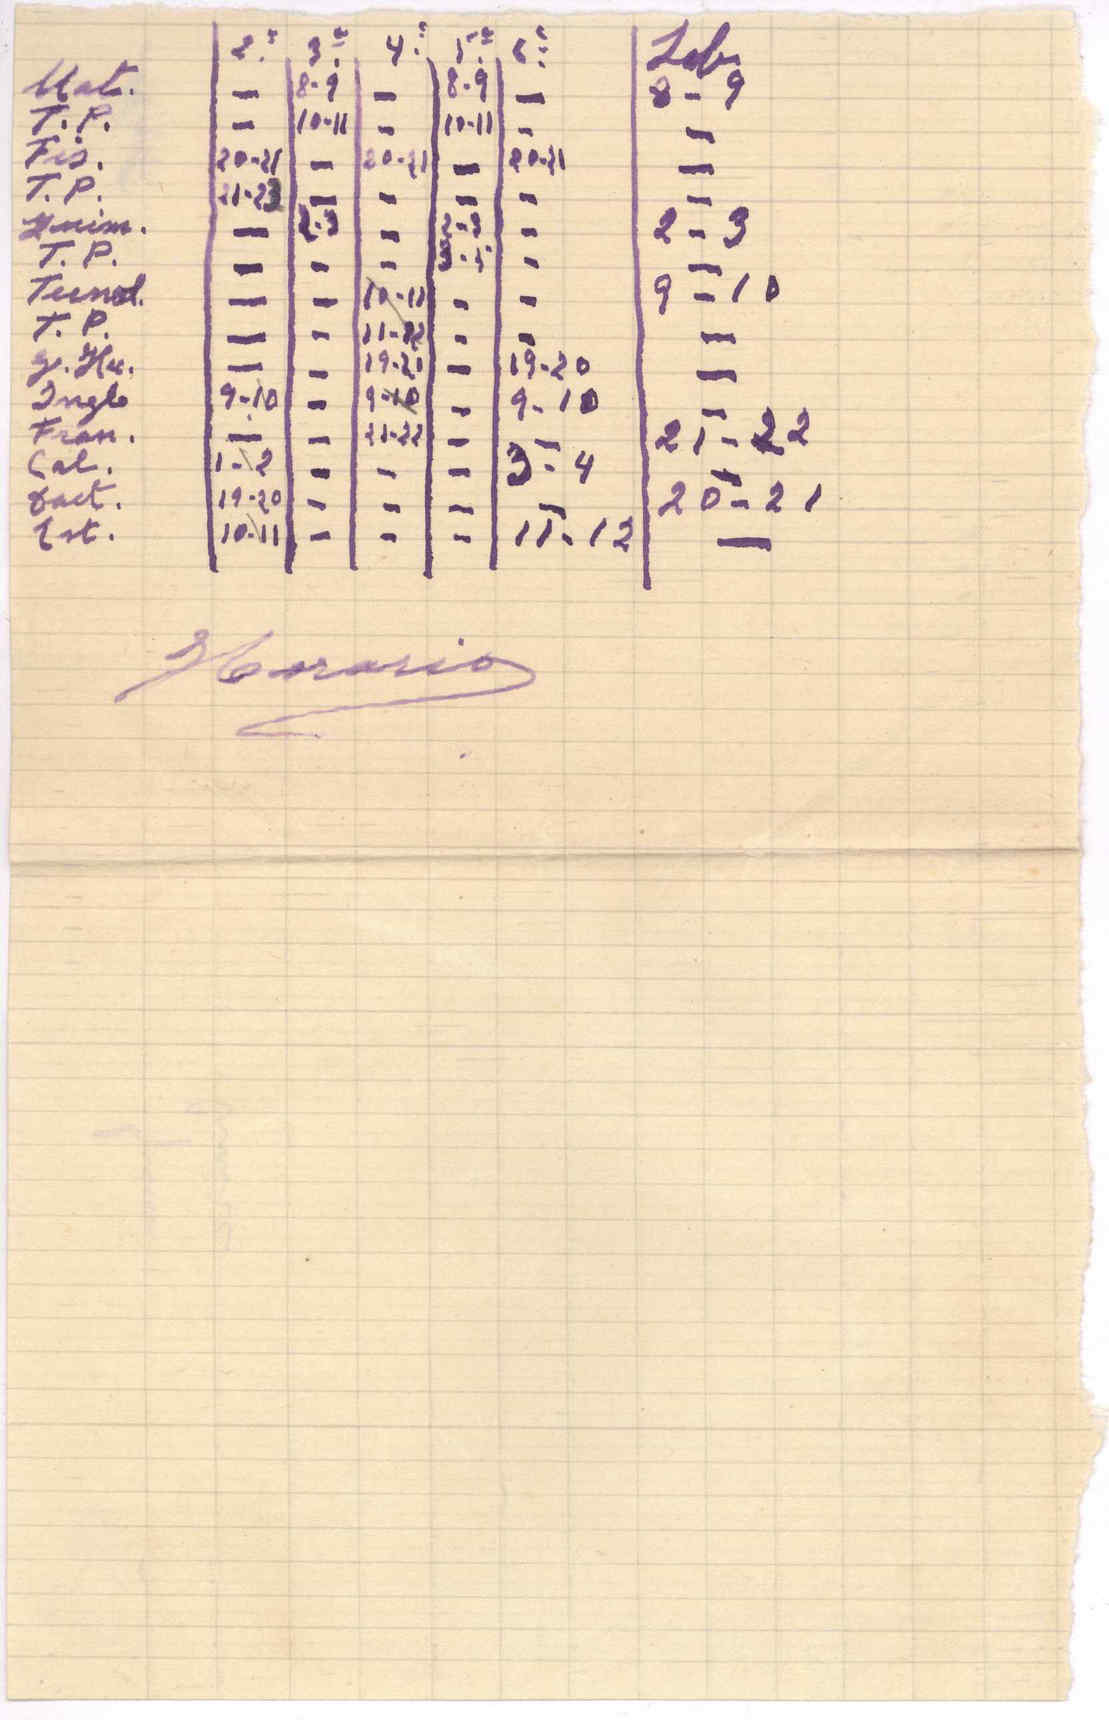 2.ª 3.ª 4.ª 5.ª 6.ª Sab.
Mat. — 8-9 — 8-9 — 8-9
T.P. — 10-11 — 10-11 — —
Fis. 20-21 — 20-21 — 20-21 —
T.P. 21-23 — — — — —
Quim. — 2-3 — 2-3 — 2-3
T.P. — — — 3-5 — —
Tecnol. — — 10-11 — — 9-10
T.P. — — 11-12 — — —
19-20 — 19-20 —
Ingls 9-10 — 9-10 — 9-10 —
Fran. — — 21-22 — — 21-22
Cal. 1-2 — — — 3-4 —
Dact. 19-20 — — — — 20-21
Est. 10-11 — — — 11-12 —
Horario